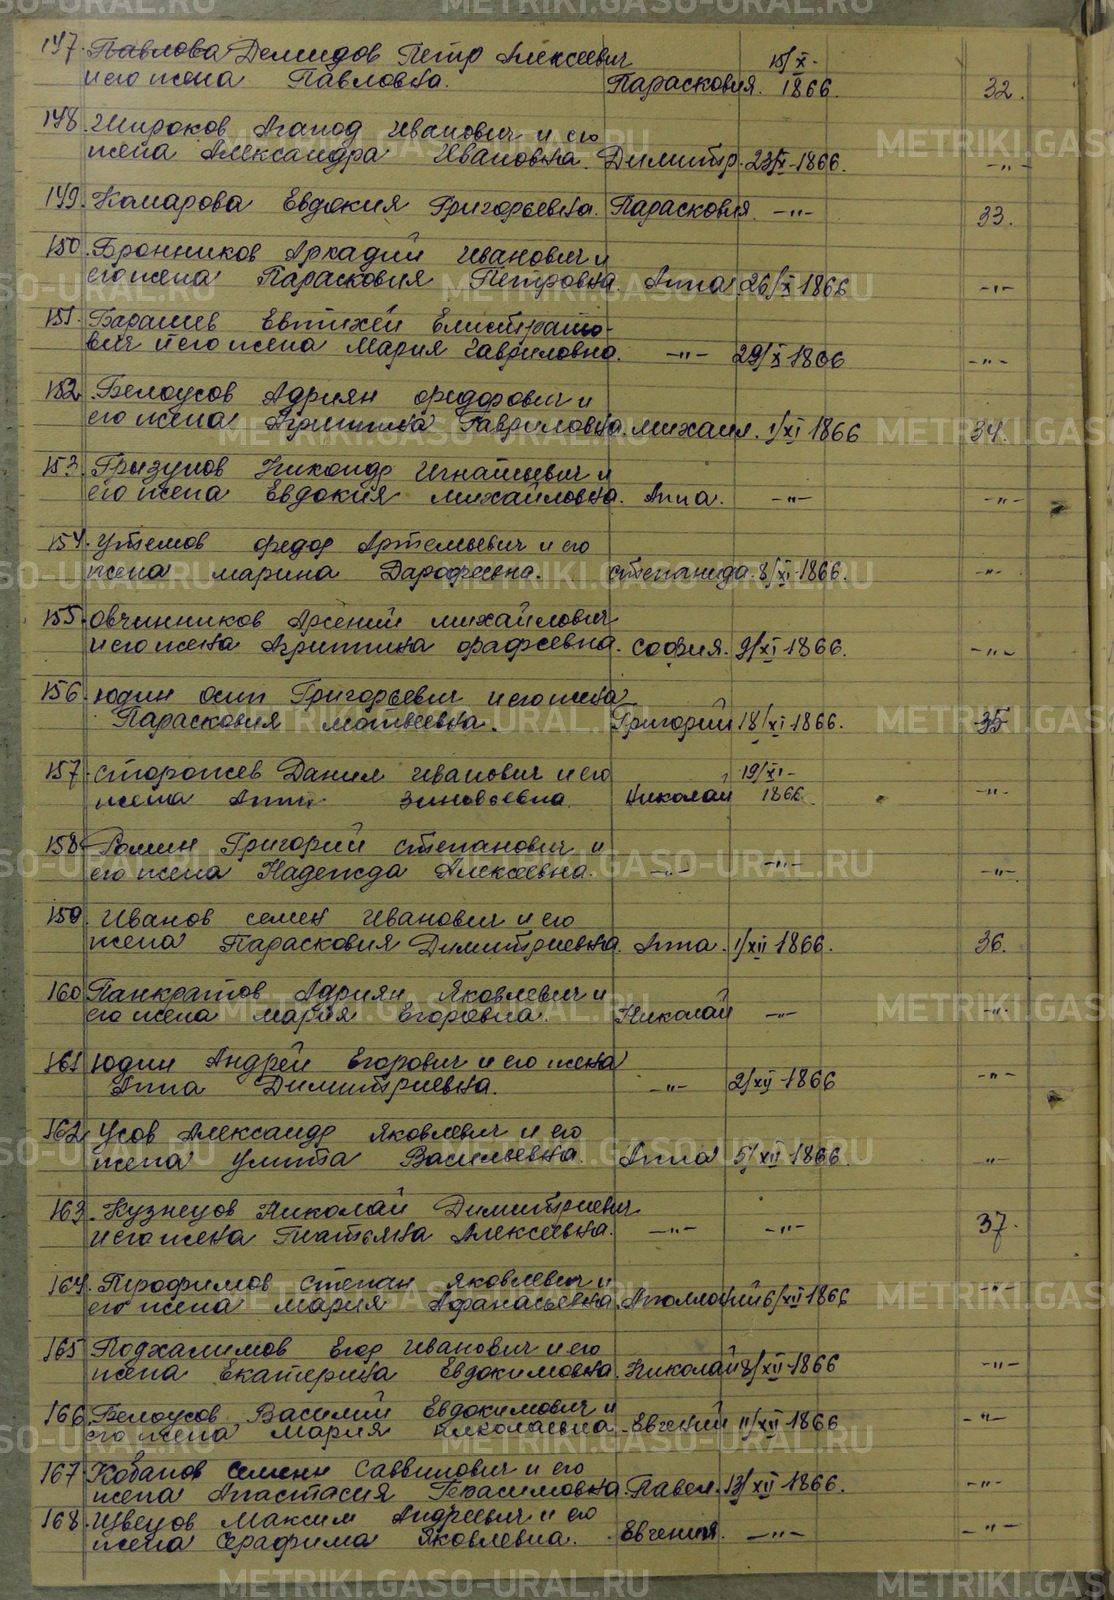 147. Павлова Демидов Петр Алексеевич
и его жена Павловна. Парасковия. 15/X- 1866. 32.
148. Широков Агапод Иванович и его
жена Александра Ивановна. Димитр. 23/X-1866. -"-
149. Комарова Евдокия Григорьевна. Парасковия. -"- 33.
150. Бронников Аркадий Иванович и
его жена Парасковия Петровна. Анна 26/X 1866 -"-
151. Барашев Евтихей Елистрато-
вич и его жена Мария Гавриловна. -"- 29/X 1866 -"-
152. Белоусов Адриян Федорович и
его жена Агриппина Гавриловна. Михаил. 1/XI 1866 34.
153. Гризунов Никондр Игнатиевич и
его жена Евдокия Михайловна. Анна. -"- -"-
154. Утемов Федор Артемьевич и его
жена Марина Дарофеевна. Степанида. 8/XI-1866. -"-
155. Овчинников Арсений Михайлович
и его жена Агриппина Фадеевна. София. 9/XI-1866. -"-
156. Юдин Осип Григорьевич и его жена
Парасковия Матвеевна. Григорий 18/XI-1866. 35
157. Сторожев Данил Иванович и его 19/XI-
жена Анна Зиновьевна Николай 1866. -"-
158. Ромин Григорий Степанович и
его жена Надежда Алексеевна. -"- -"- -"-
159. Иванов Семен Иванович и его
жена Парасковия Димитриевна. Анна. 1/XII 1866. 36.
160. Панкратов Адриян Яковлевич и
его жена Мария Егоровна. Николай -"- -"-
161. Юдин Андрей Егорович и его жена
Анна Димитриевна. -"- 2/XII-1866 -"-
162. Усов Александр Яковлевич и его
жена Улита Васильевна. Анна 5/XII-1866. -"-
163. Кузнецов Николай Димитриевич
и его жена Татьяна Алексеевна. -"- -"- 37.
164. Трофимов Степан Яковлевич и
его жена Мария Афанасьевна. Аполлоний 6/XII-1866 -"-
165. Подхалимов Егор Иванович и его
жена Екатерина Евдокимовна. Николай 8/XII-1866 -"-
166. Белоусов Василий Евдокимович и
его жена Мария Николаевна. Евгений 11/XII-1866 -"-
167. Кобанов Семенн Саввинович и его
жена Анастасия Герасимовна. Павел. 13/XII-1866. -"-
168. Цвецов Максим Андреевич и его
жена Серафима Яковлевна. Евгения. -"- -"-
METRIKI.GASO-URAL.RU